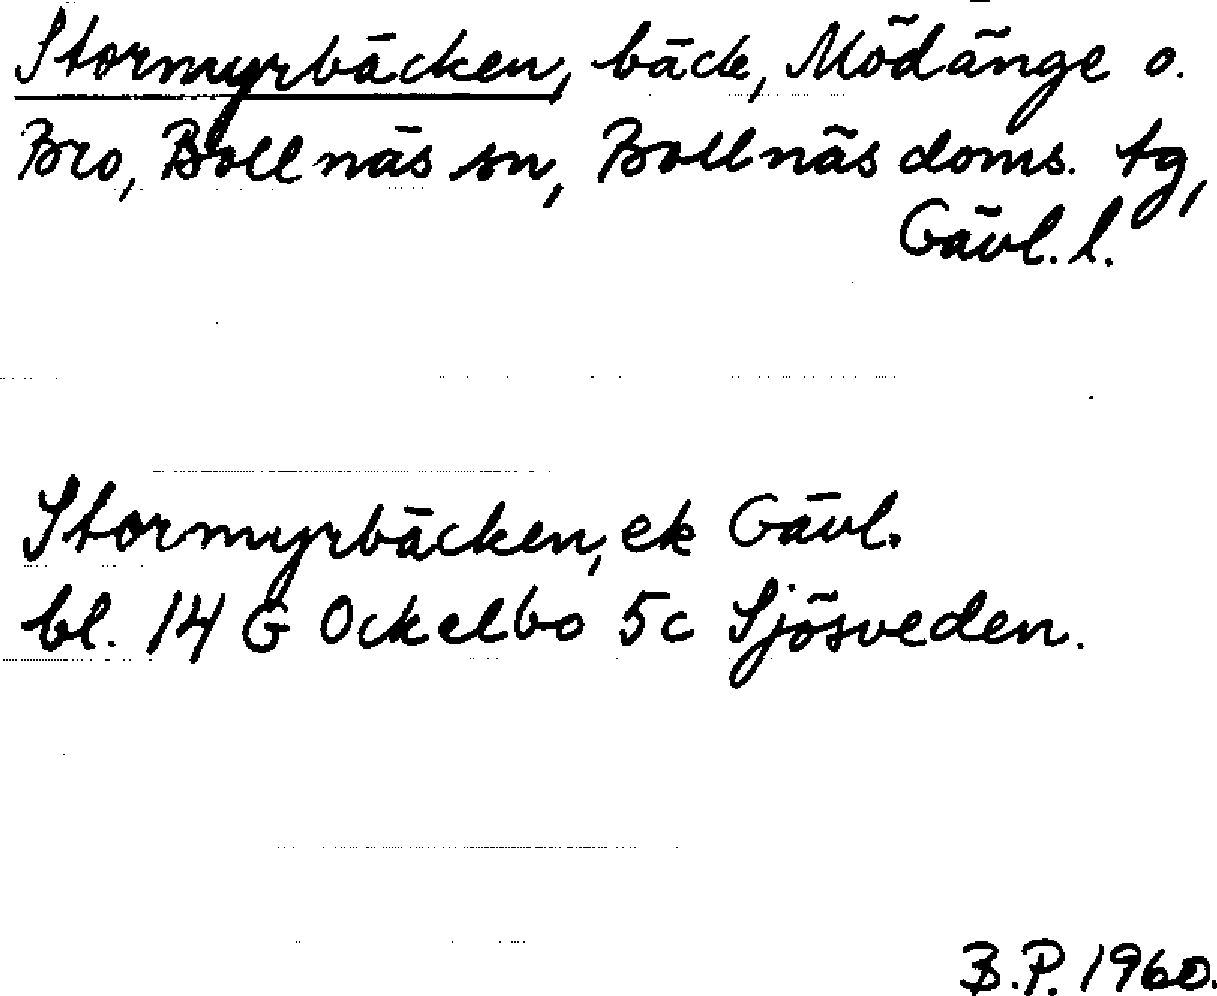 Stormyrbäcken, bäck, Mödänge o.
Bro, Bollnäs sn, Bollnäs doms. tg,
Gävl. l.
Stormyrbäcken, ek Gävl.
bl. 14 G Ockelbo 5c Sjösveden.
B.P. 1960.